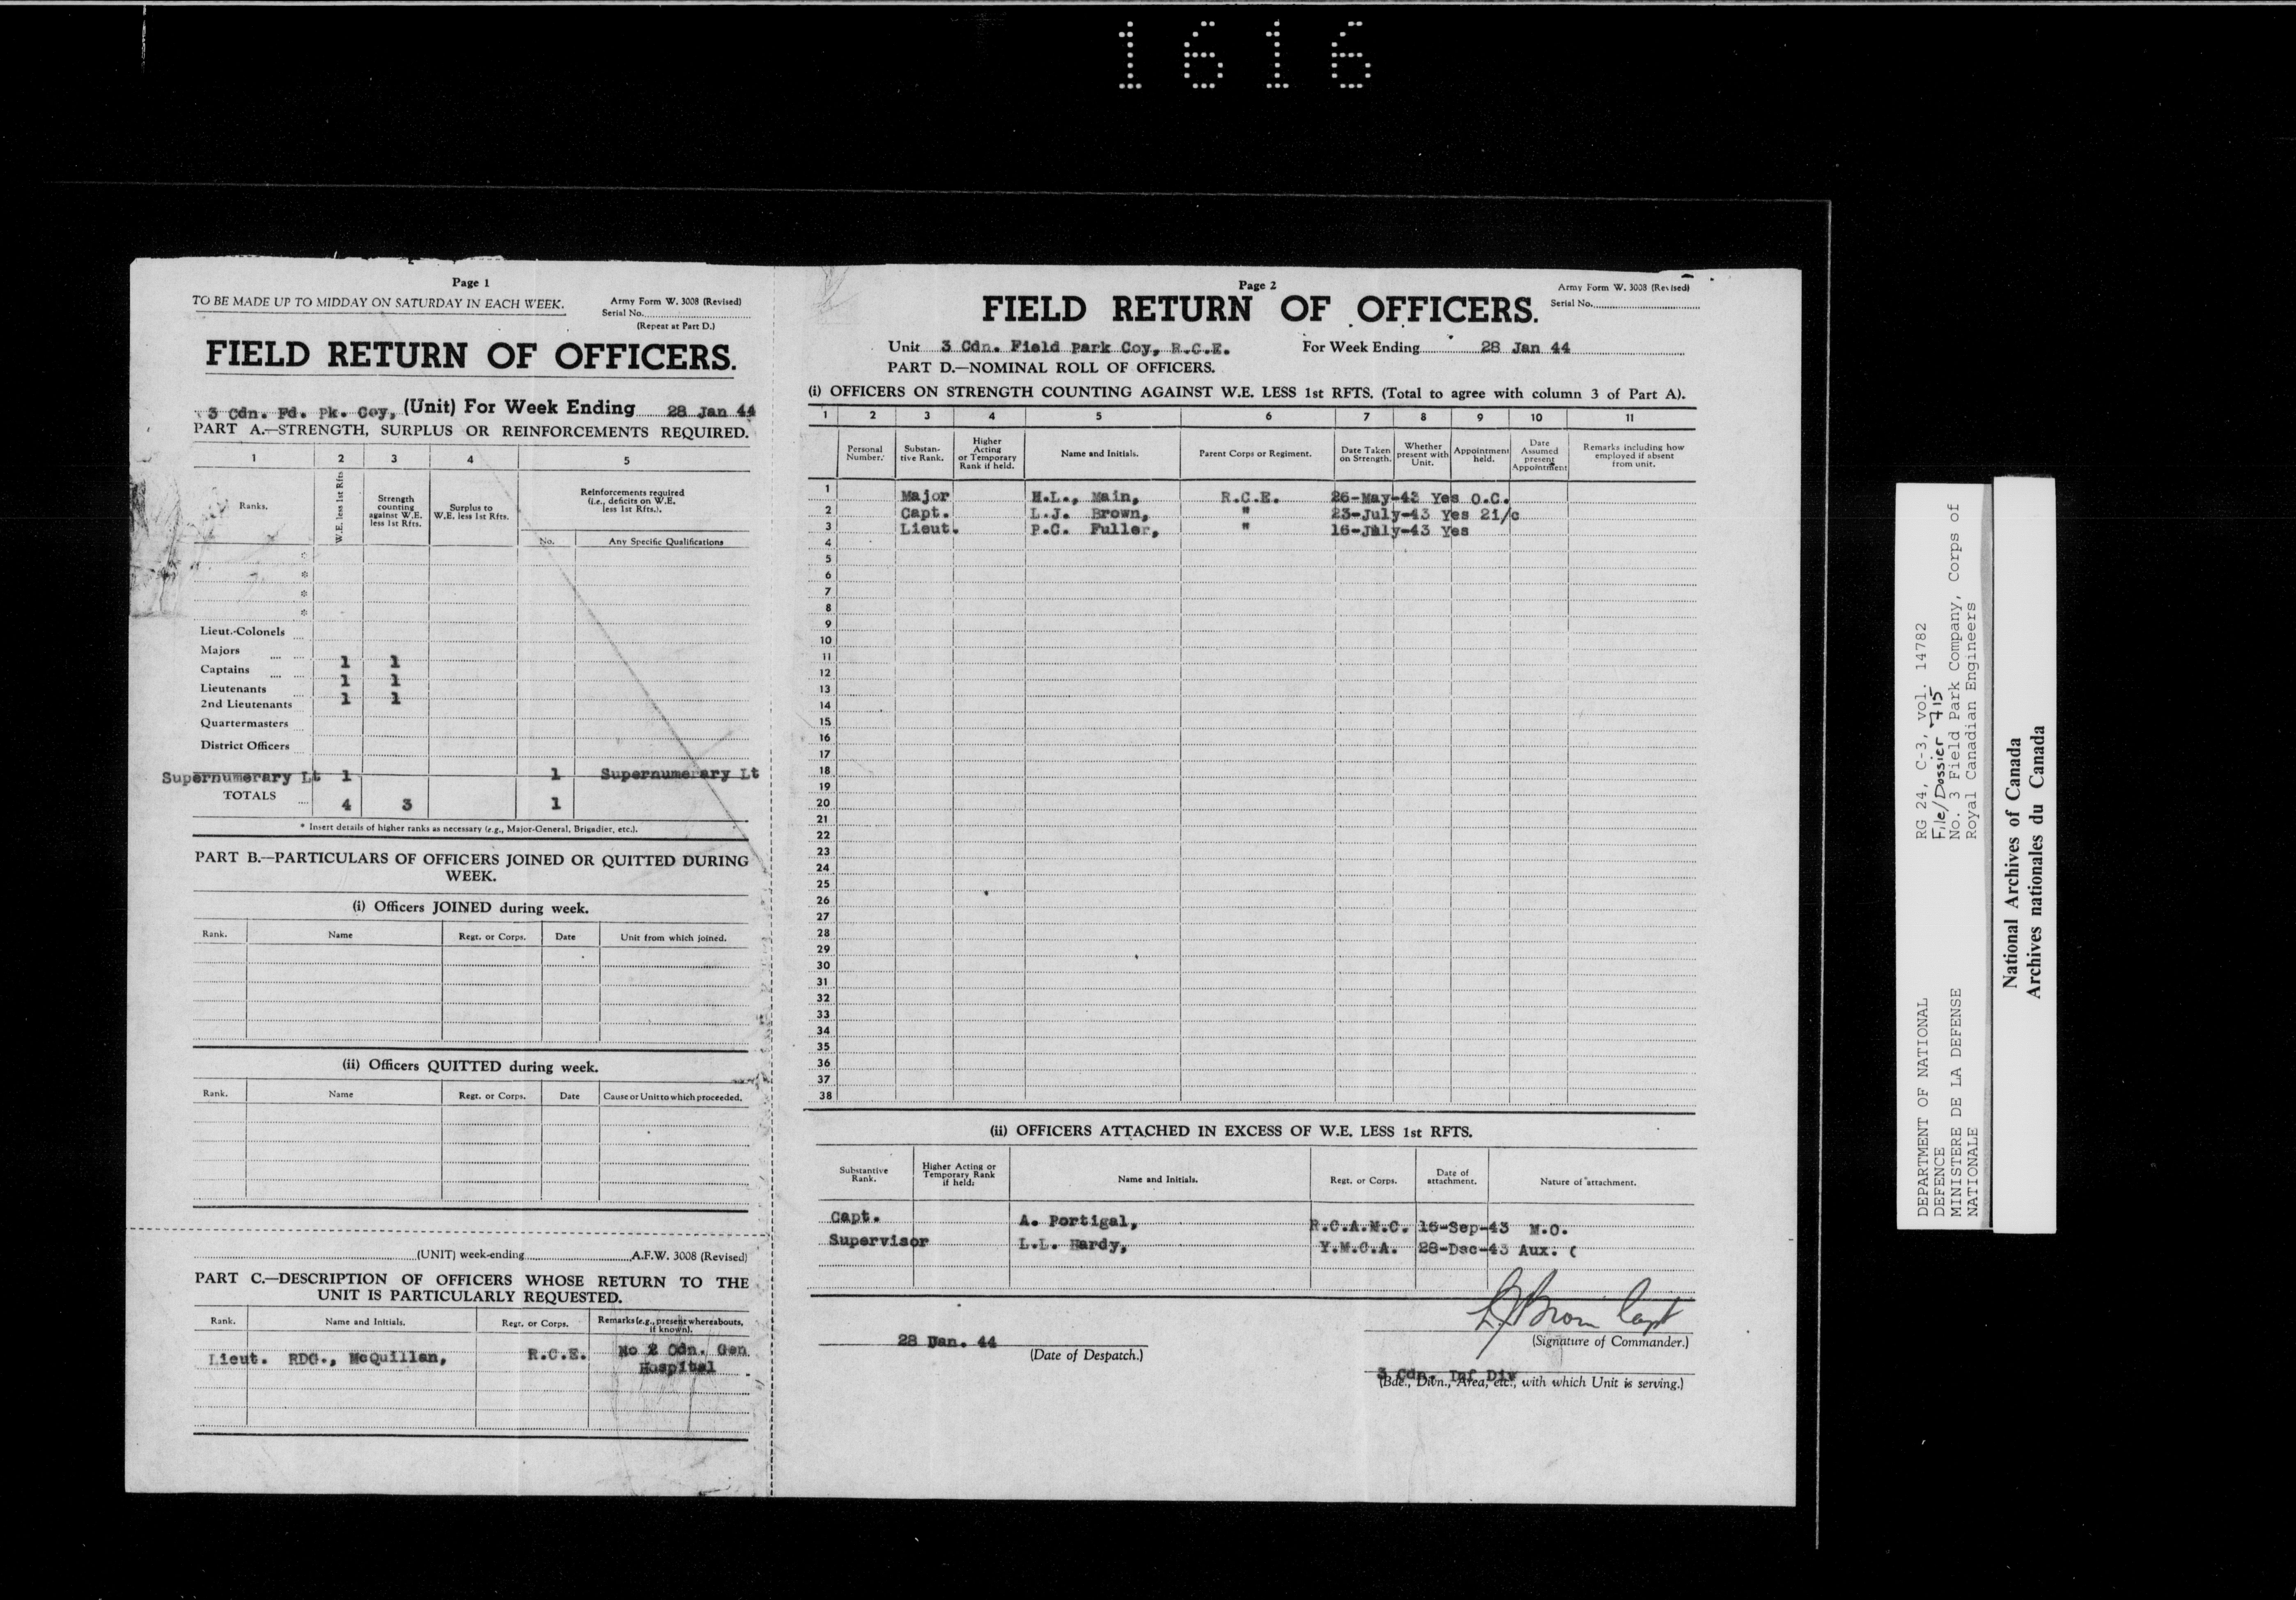 1616
Page 1
TO BE MADE UP TO MIDDAY ON SATURDAY IN EACH WEEK.
Army Form W. 3008 (Revised)
Serial No.
(Repeat at Part D.)
FIELD RETURN OF OFFICERS.
3 Cdn. Fd. Pk. Coy, (Unit) For Week Ending 28 Jan 44
PART A.—STRENGTH, SURPLUS OR REINFORCEMENTS REQUIRED.
1 2 3 4 5
Ranks. W.E. less 1st Rfts Strength counting against W.E. less 1st Rfts. Surplus to W.E. less 1st Rfts. Reinforcements required (i.e., deficits on W.E. less 1st Rfts.).
No. Any Specific Qualifications
*
*
*
*
Lieut.-Colonels
Majors 1 1
Captains 1 1
Lieutenants 1 1
2nd Lieutenants
Quartermasters
District Officers
Supernumerary Lt 1 1 Supernumerary Lt
TOTALS 4 3 1
* Insert details of higher ranks as necessary (e.g., Major-General, Brigadier, etc.).
PART B.—PARTICULARS OF OFFICERS JOINED OR QUITTED DURING
WEEK.
(i) Officers JOINED during week.
Rank. Name Regt. or Corps. Date Unit from which joined.
(ii) Officers QUITTED during week.
Rank. Name Regt. or Corps. Date Cause or Unit to which proceeded.
(UNIT) week-ending A.F.W. 3008 (Revised)
PART C.—DESCRIPTION OF OFFICERS WHOSE RETURN TO THE
UNIT IS PARTICULARLY REQUESTED.
Rank. Name and Initials. Regt. or Corps. Remarks (e.g., present whereabouts, if known).
Lieut. RDG., McQuillan, R.C.E. No 2 Cdn. Gen
Hospital
Page 2
Army Form W. 3008 (Revised)
FIELD RETURN OF OFFICERS.
Serial No.
Unit 3 Cdn. Field Park Coy, R.C.E. For Week Ending 28 Jan 44
PART D.—NOMINAL ROLL OF OFFICERS.
(i) OFFICERS ON STRENGTH COUNTING AGAINST W.E. LESS 1st RFTS. (Total to agree with column 3 of Part A).
1 2 3 4 5 6 7 8 9 10 11
Personal Number. Substan-tive Rank. Higher Acting or Temporary Rank if held. Name and Initials. Parent Corps or Regiment. Date Taken on Strength. Whether present with Unit. Appointment held. Date Assumed present Appointment Remarks including how employed if absent from unit.
1 Major H.L., Main, R.C.E. 26-May-43 Yes O.C.
2 Capt. L.J. Brown, " 23-July-43 Yes 2i/c
3 Lieut. P.C. Fuller, " 16-July-43 Yes
4
5
6
7
8
9
10
11
12
13
14
15
16
17
18
19
20
21
22
23
24
25
26
27
28
29
30
31
32
33
34
35
36
37
38
(ii) OFFICERS ATTACHED IN EXCESS OF W.E. LESS 1st RFTS.
Substantive Rank. Higher Acting or Temporary Rank if held. Name and Initials. Regt. or Corps. Date of attachment. Nature of attachment.
Capt. A. Portigal, R.C.A.M.C. 16-Sep-43 M.O.
Supervisor L.L. Hardy, Y.M.C.A. 28-Dec-43 Aux. (
L J Brown Capt
28 Jan. 44
(Signature of Commander.)
(Date of Despatch.)
3 Cdn. Inf Div
(Bde., Divn., Area, etc., with which Unit is serving.)
DEPARTMENT OF NATIONAL
DEFENCE
MINISTERE DE LA DEFENSE
NATIONALE
RG 24, C-3, vol. 14782
File/Dossier 715
No. 3 Field Park Company, Corps of
Royal Canadian Engineers
National Archives of Canada
Archives nationales du Canada